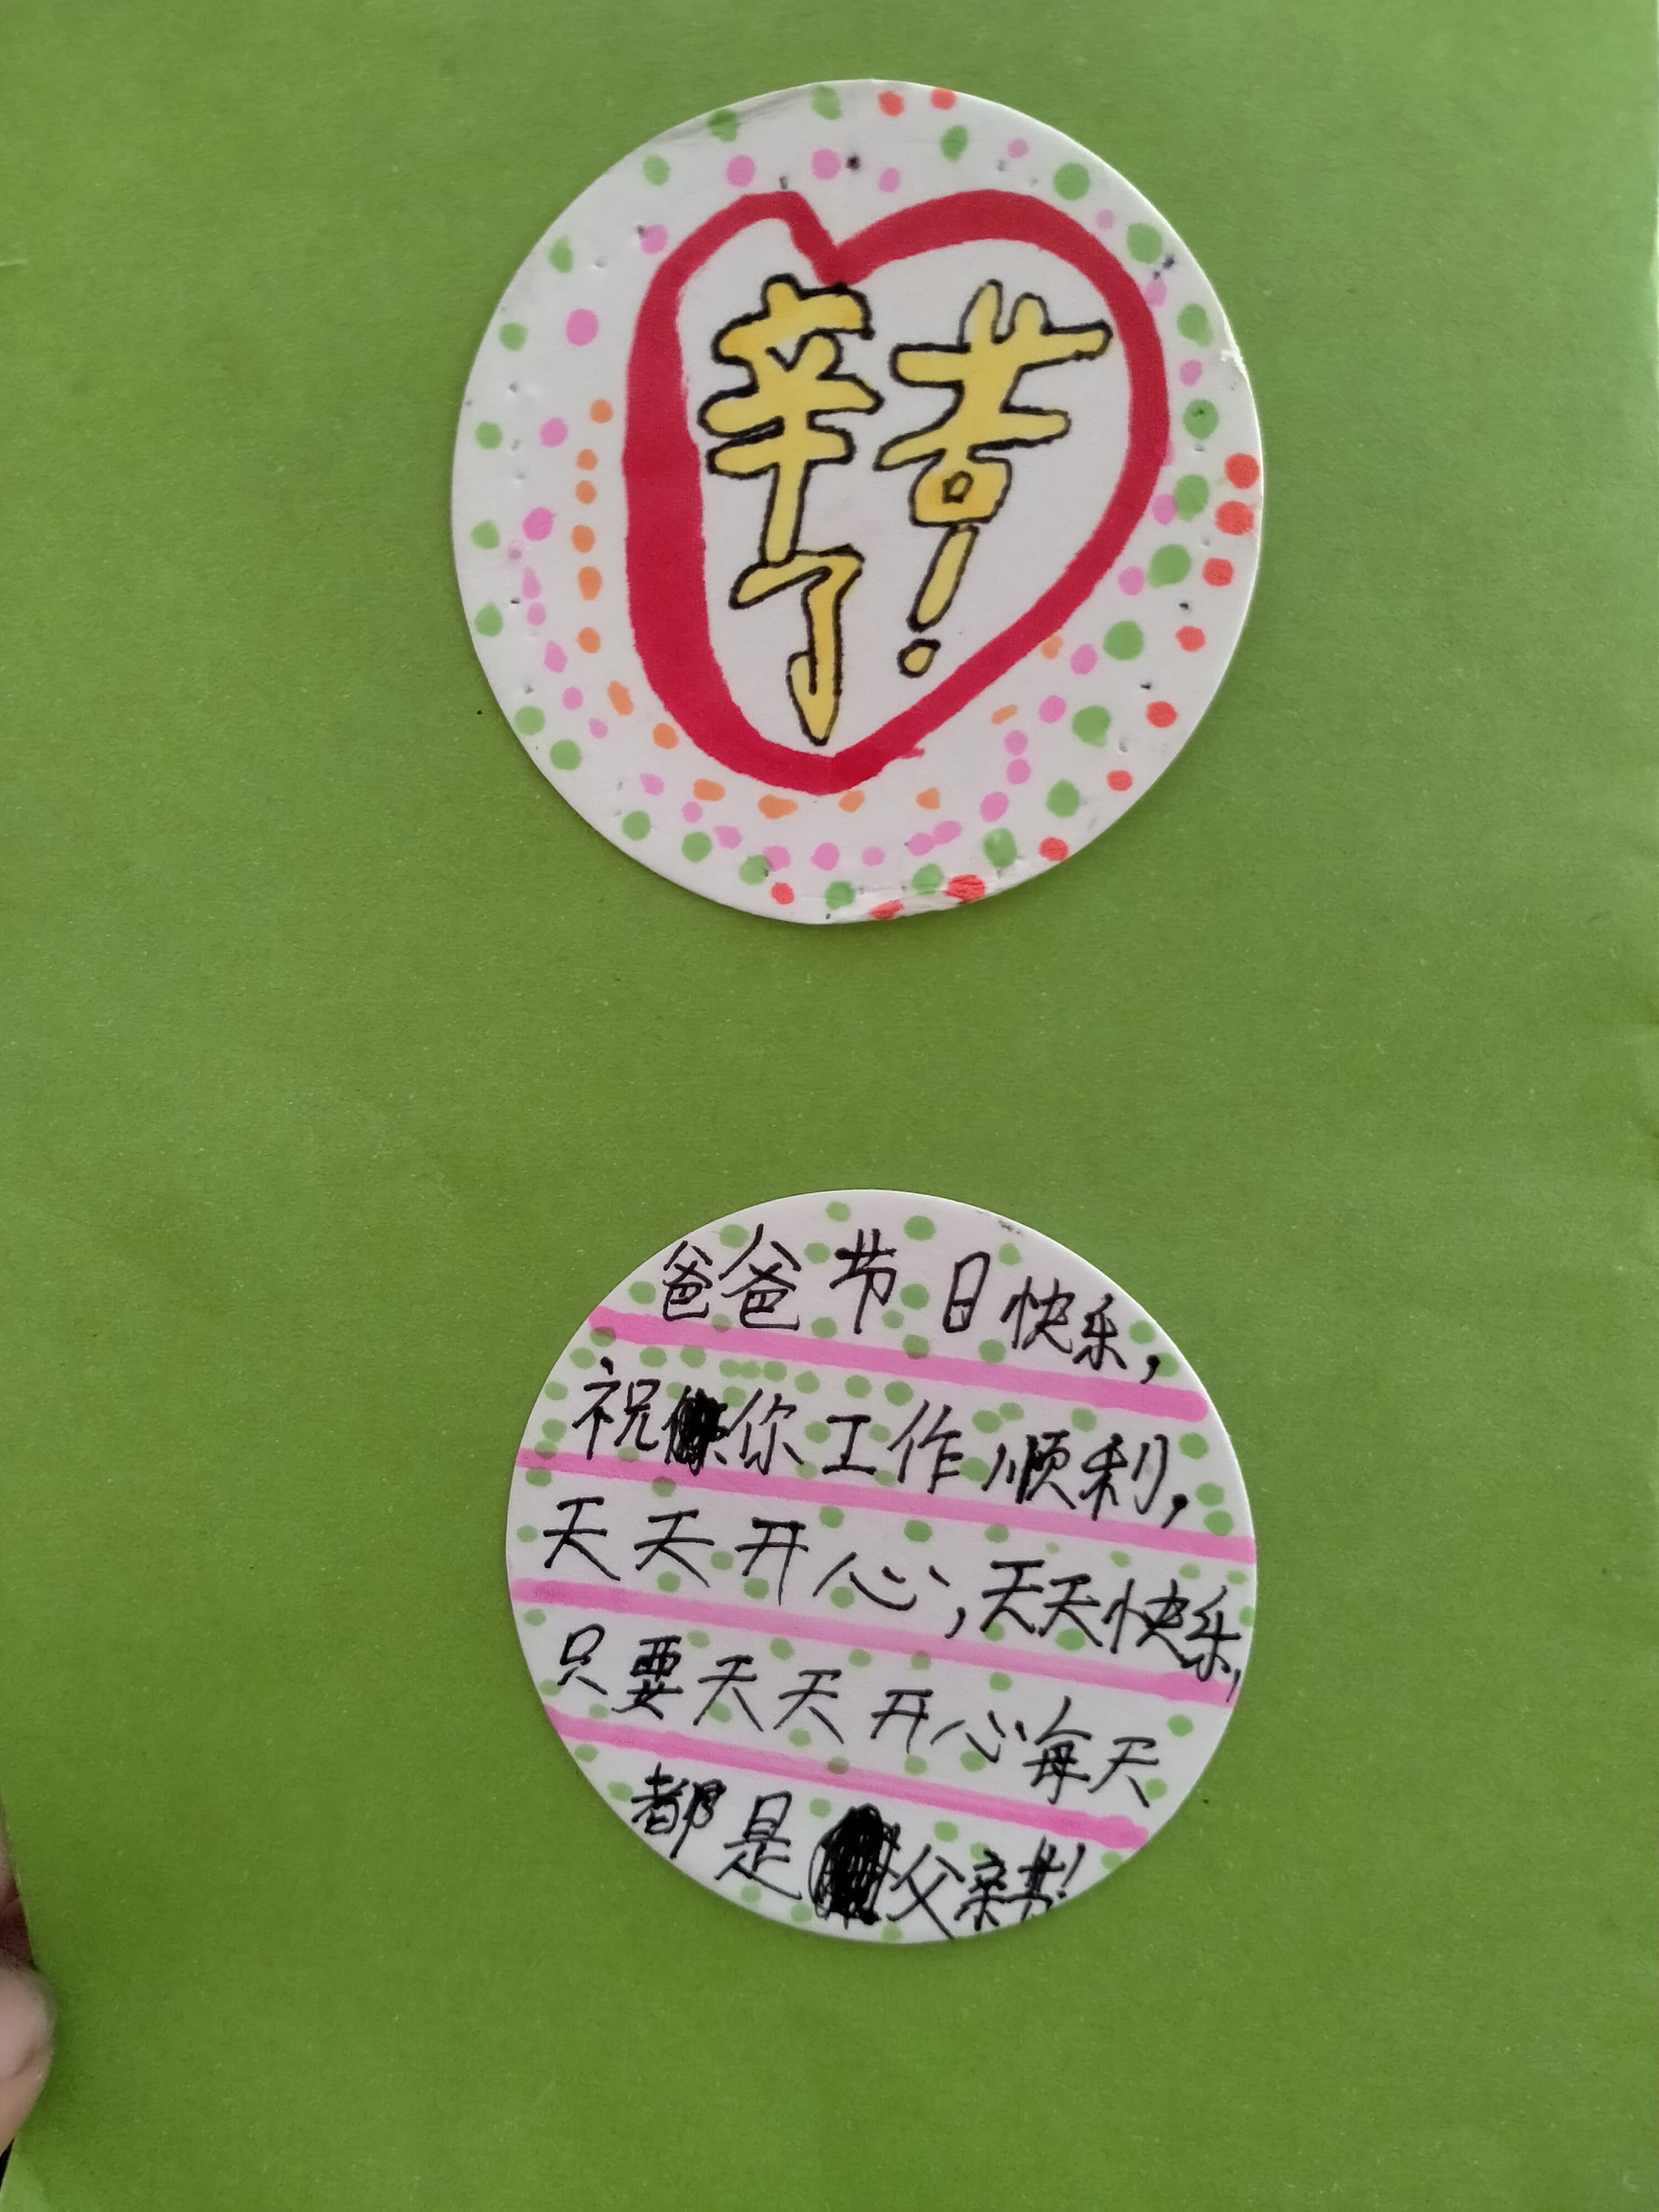 辛苦
了!
爸爸节日快乐,
祝你工作顺利,
天天开心,天天快乐,
只要天天开心每天
都是父亲节!